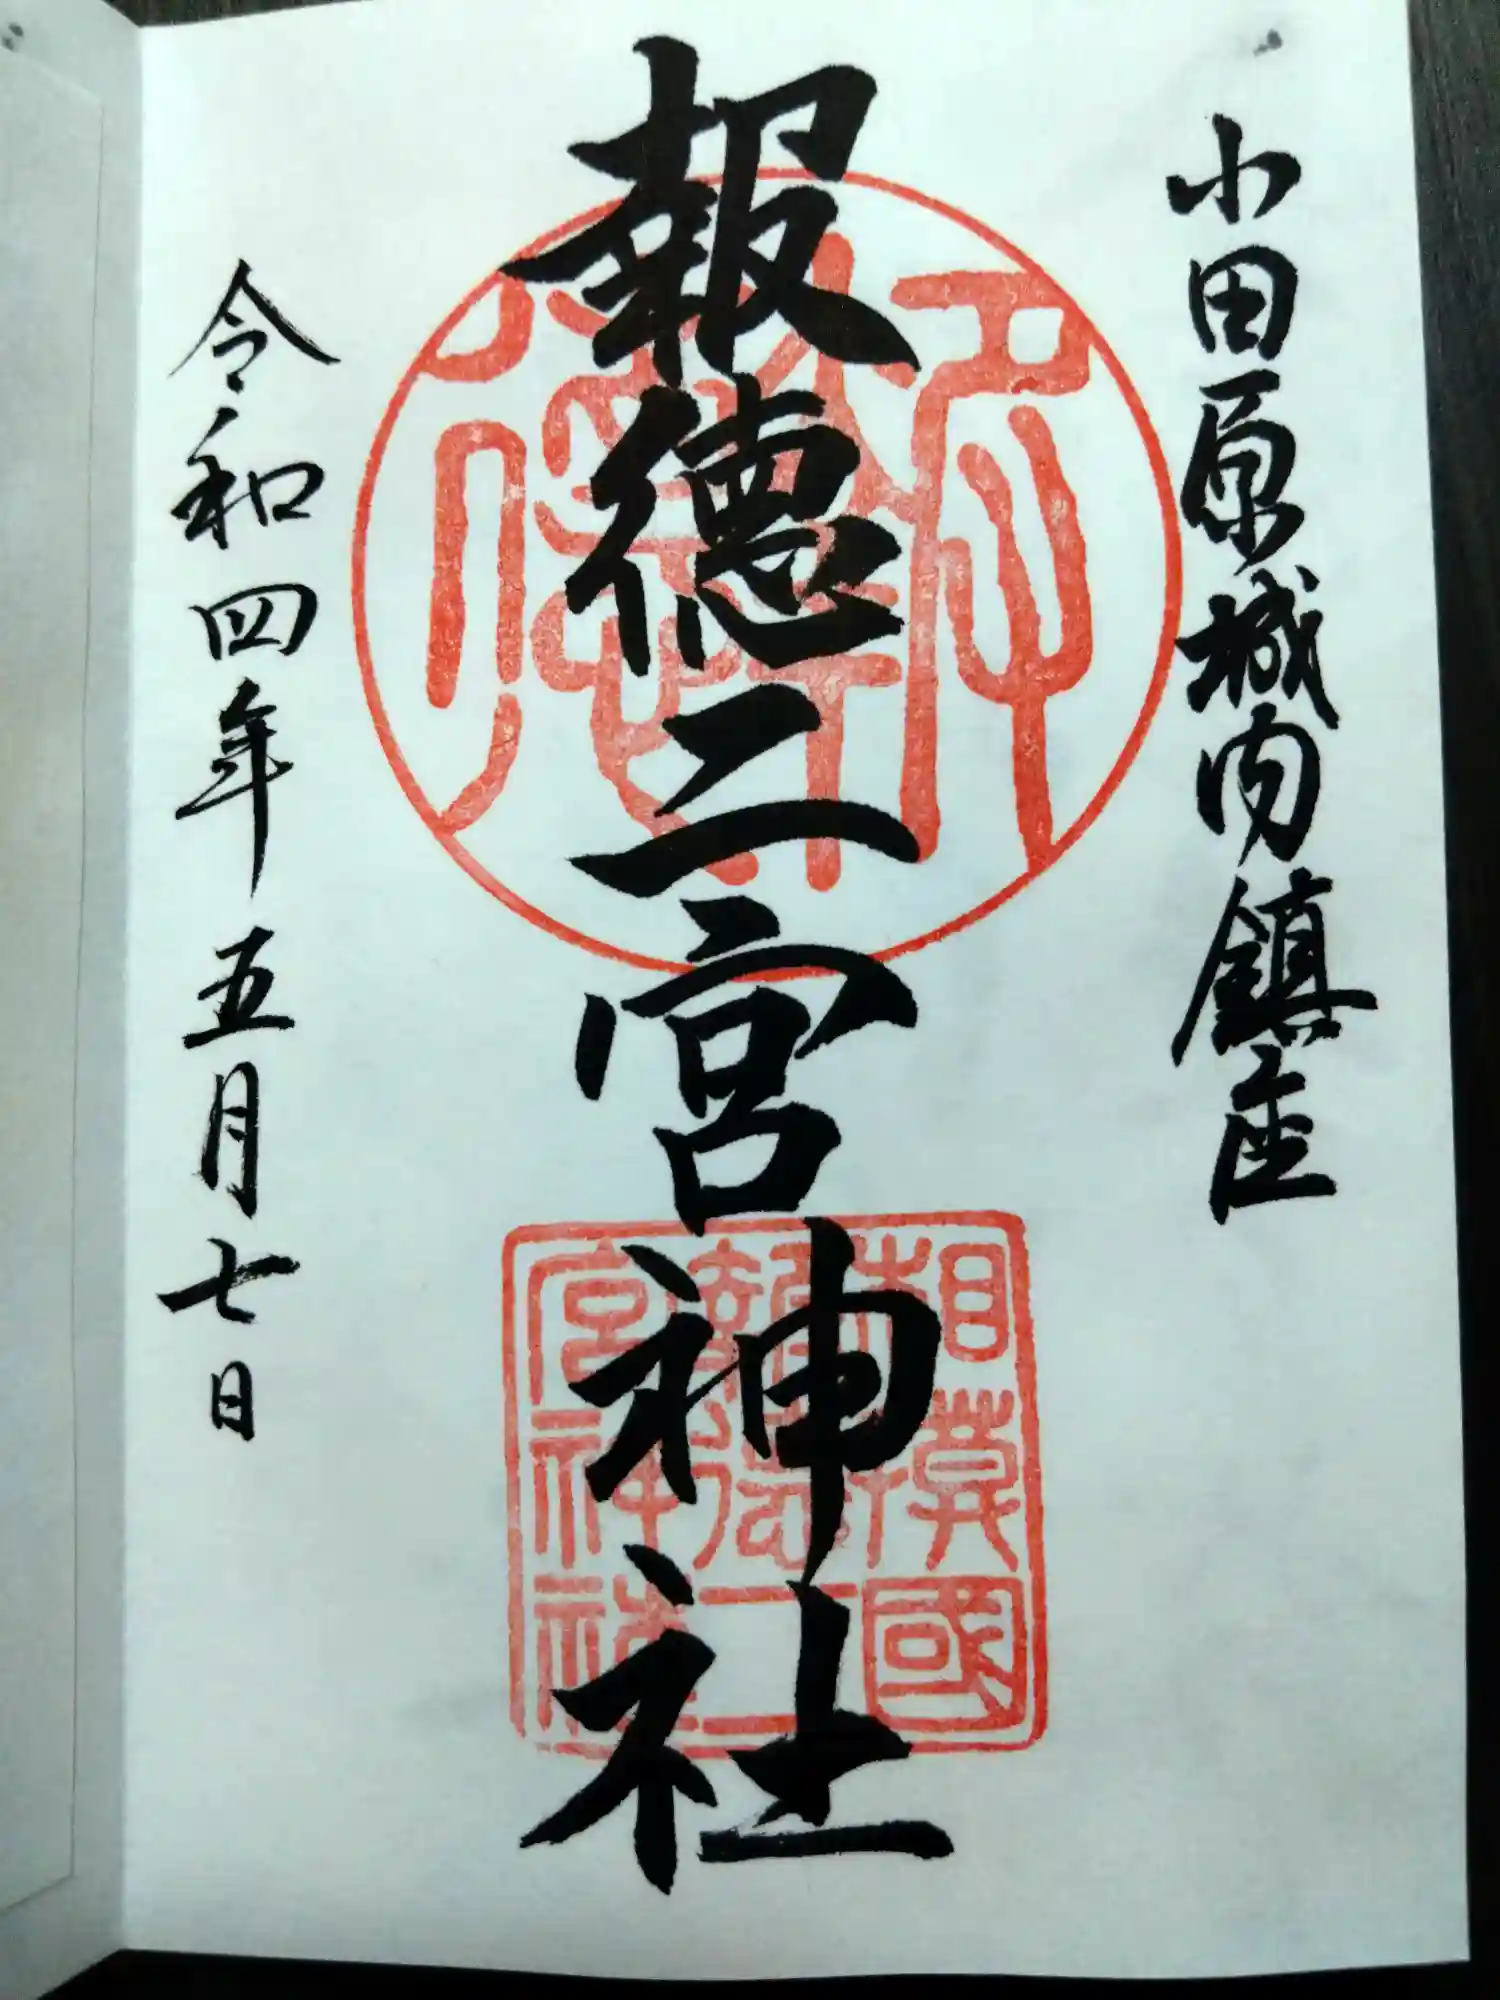 小田原城内鎮座
報徳二宮神社
令和四年五月七日
報徳
相模國
報徳二
宮神社